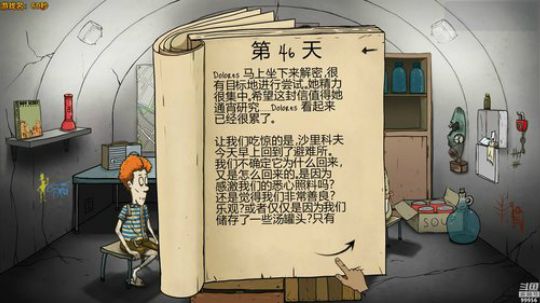 游戏名：60秒
第 46 天
Dolores 马上坐下来解密,很
有目标地进行尝试。她精力
很集中,希望这封信值得她
通宵研究...Dolores 看起来
已经很累了。
让我们吃惊的是,沙里科夫
今天早上回到了避难所。
我们不确定它为什么回来,
又是怎么回来的,是因为
感激我们的悉心照料吗?
还是觉得我们非常善良?
乐观?或者仅仅是因为我们
储存了一些汤罐头?只有
BOY SCOUT
SOUP
斗鱼
99956